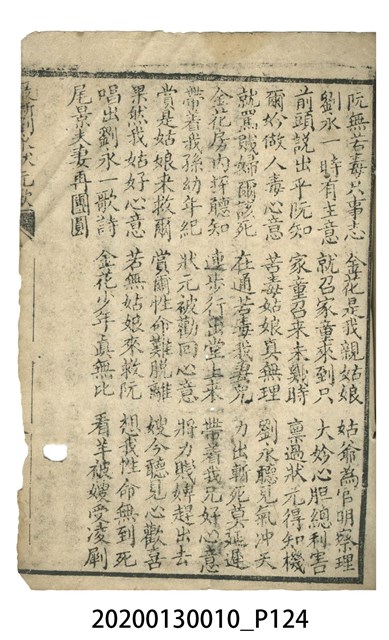 阮無苦毒只事志 金花是我親姑娘 姑爺為官明察理
劉永一時有主意 就召家童來到只 大妗心胆總利害
前頭說出乎阮知 家童召來未幾時 稟過狀元得知機
爾妗做人毒心意 苦毒姑娘真無理 劉永聽見氣冲天
就罵賤婦爾該死 在通苦毒我妻兒 力出斬死莫延遲
金花房內聽知 連步行出堂上來 帶着我兄好心意
帶着我孫幼年紀 狀元被勸回心意 將力賤婢趕出去
賞是姑娘來救爾 賞爾性命難脫離 嫂今聽見心歡喜
果然我姑好心意 若無姑娘來救阮 想我性命無到死
唱出劉永一歌詩 金花少年真無比 看羊被嫂受凌剮
尾景夫妻再團圓
20200130010_P124